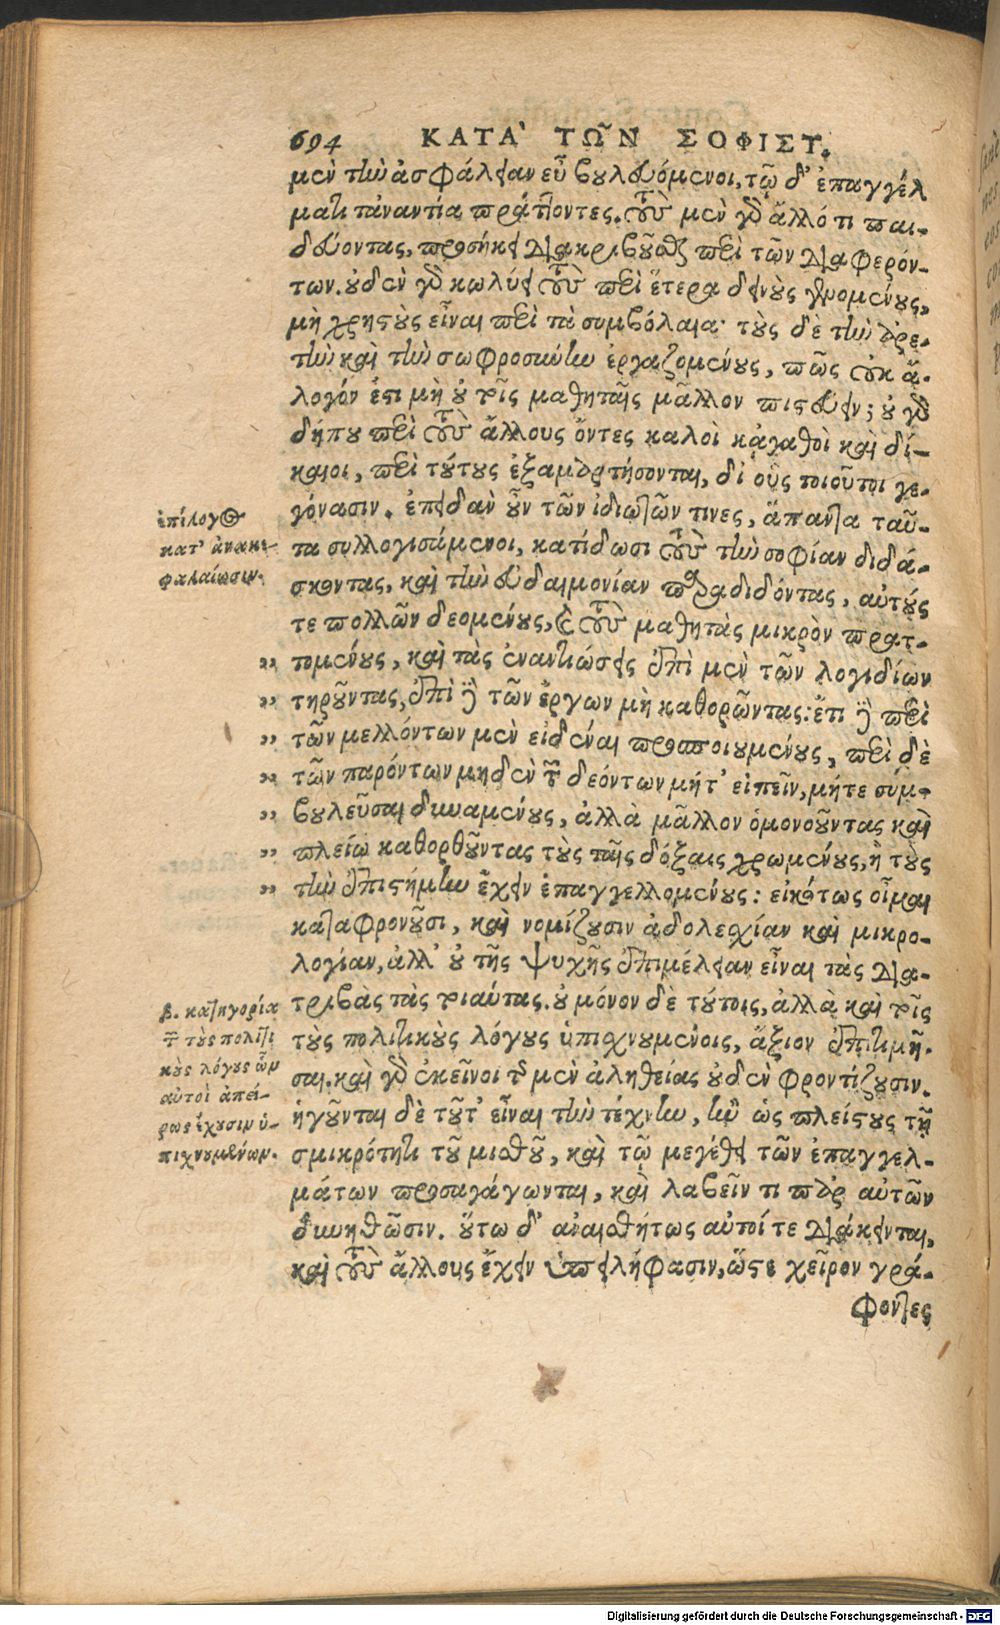 694 ΚΑΤᾺ ΤΩ͂Ν ΣΟΦΙΣΤ.
μὲν τὴν ἀσφάλειαν εὖ βουλευόμενοι, τῷ δ' ἐπαγγέλ
ματι τἀναντία πράττοντες. τοὺς μὲν γὰρ ἄλλό τι παι-
δεύοντας, προσήκει διακριβοῦσθαι περὶ τῶν διαφερόν-
των. οὐδὲν γὰρ κωλύει τοὺς περὶ ἕτερα δεινοὺς γενομένους,
μὴ χρηστοὺς εἶναι περὶ τὰ συμβόλαια· τοὺς δὲ τὴν ἀρε-
τὴν καὶ τὴν σωφροσύνην ἐργαζομένους, πῶς οὐκ ἄ-
λογόν ἐστι μὴ οὐ τοῖς μαθηταῖς μᾶλλον πιστεύειν; οὐ γὰρ
δήπου περὶ τοὺς ἄλλους ὄντες καλοὶ κἀγαθοὶ καὶ δί-
καιοι, περὶ τούτους ἐξαμαρτήσονται, δι' οὓς τοιοῦτοι γε-
γόνασιν. ἐπειδὰν οὖν τῶν ἰδιωτῶν τινες, ἅπαντα ταῦ-
ἐπίλογος
κατ' ἀνακε-
φαλαίωσιν.
τα συλλογισάμενοι, κατίδωσι τοὺς τὴν σοφίαν διδά-
σκοντας, καὶ τὴν εὐδαιμονίαν παραδιδόντας, αὐτούς
τε πολλῶν δεομένους, καὶ τοὺς μαθητὰς μικρὸν πρατ-
„ τομένους, καὶ τὰς ἐναντιώσεις ἐπὶ μὲν τῶν λογιδίων
„ τηροῦντας, ἐπὶ δὲ τῶν ἔργων μὴ καθορῶντας: ἔτι δὲ περὶ
„ τῶν μελλόντων μὲν εἰδέναι προσποιουμένους, περὶ δὲ
„ τῶν παρόντων μηδὲν τῶν δεόντων μήτ' εἰπεῖν, μήτε συμ-
„ βουλεῦσαι δυναμένους, ἀλλὰ μᾶλλον ὁμονοοῦντας καὶ
„ πλείω κατορθοῦντας τοὺς ταῖς δόξαις χρωμένους, ἢ τοὺς
„ τὴν ἐπιστήμην ἔχειν ἐπαγγελλομένους: εἰκότως οἶμαι
καταφρονοῦσι, καὶ νομίζουσιν ἀδολεσχίαν καὶ μικρο-
λογίαν, ἀλλ' οὐ τῆς ψυχῆς ἐπιμέλειαν εἶναι τὰς δια-
τριβὰς τὰς τοιαύτας. οὐ μόνον δὲ τούτοις, ἀλλὰ καὶ τοῖς
β. κατηγορία
τῶν τοὺς πολιτι
κοὺς λόγους ὧν
αὐτοὶ ἀπεί-
ρως ἔχουσιν ὑ-
πισχνουμένων.
τοὺς πολιτικοὺς λόγους ὑπισχνουμένοις, ἄξιον ἐπιτιμῆ-
σαι. καὶ γὰρ ἐκεῖνοι τῆς μὲν ἀληθείας οὐδὲν φροντίζουσιν.
ἡγοῦνται δὲ τοῦτ' εἶναι τὴν τέχνην, ἢν ὡς πλείστους τῇ
σμικρότητι τοῦ μισθοῦ, καὶ τῷ μεγέθει τῶν ἐπαγγελ-
μάτων προσαγάγωνται, καὶ λαβεῖν τι παρ' αὐτῶν
δυνηθῶσιν. οὕτω δ' ἀναισθήτως αὐτοί τε διάκεινται,
καὶ τοὺς ἄλλους ἔχειν ὑπειλήφασιν, ὥστε χεῖρον γρά-
φοντες
Digitalisierung gefördert durch die Deutsche Forschungsgemeinschaft - DFG